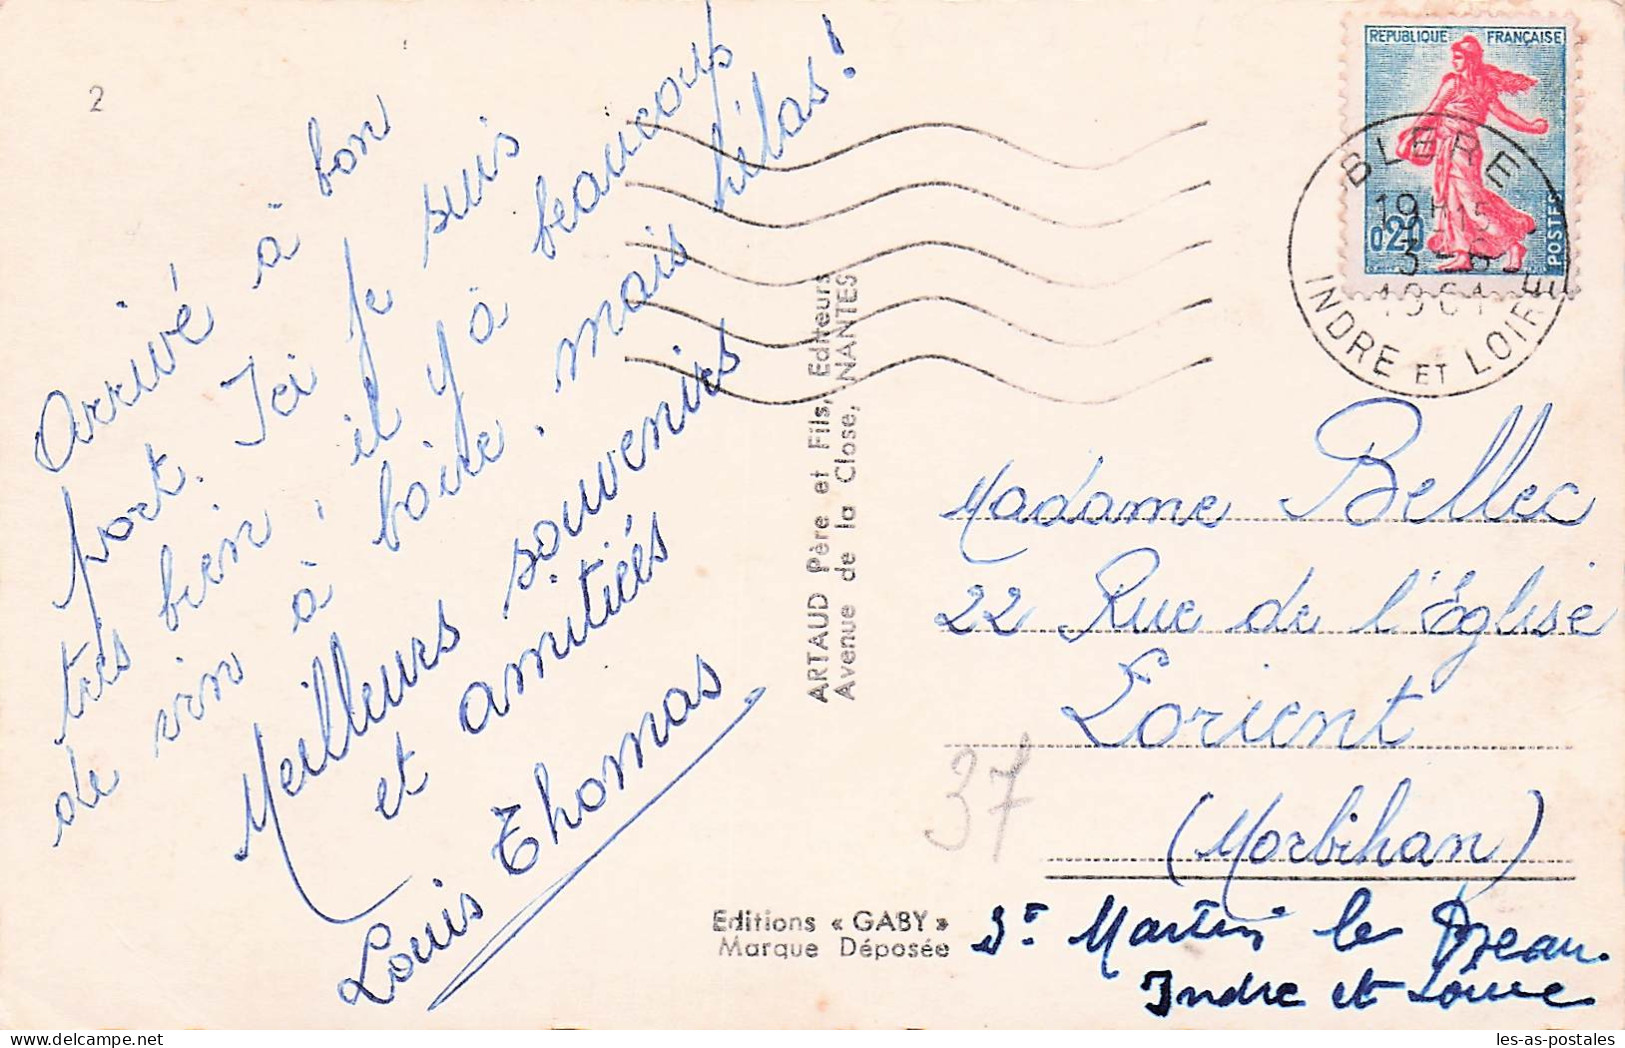 2
Arrivé à bon
port. Ici je suis
très bien, il y a beaucoup
de vin à boire, mais hélas !
Meilleurs souvenirs
et amitiés
Louis Thomas
ARTAUD Père et Fils, Editeurs
Avenue de la Close, NANTES
Editions « GABY »
Marque Déposée
REPUBLIQUE FRANÇAISE
0,20
POSTES
BLERE
19H15
3 - 8
1961
INDRE ET LOIRE
Madame Bellec
22 Rue de l'Église
Lorient
(Morbihan)
37
St Martin le Beau.
Indre et Loire
les-as-postales